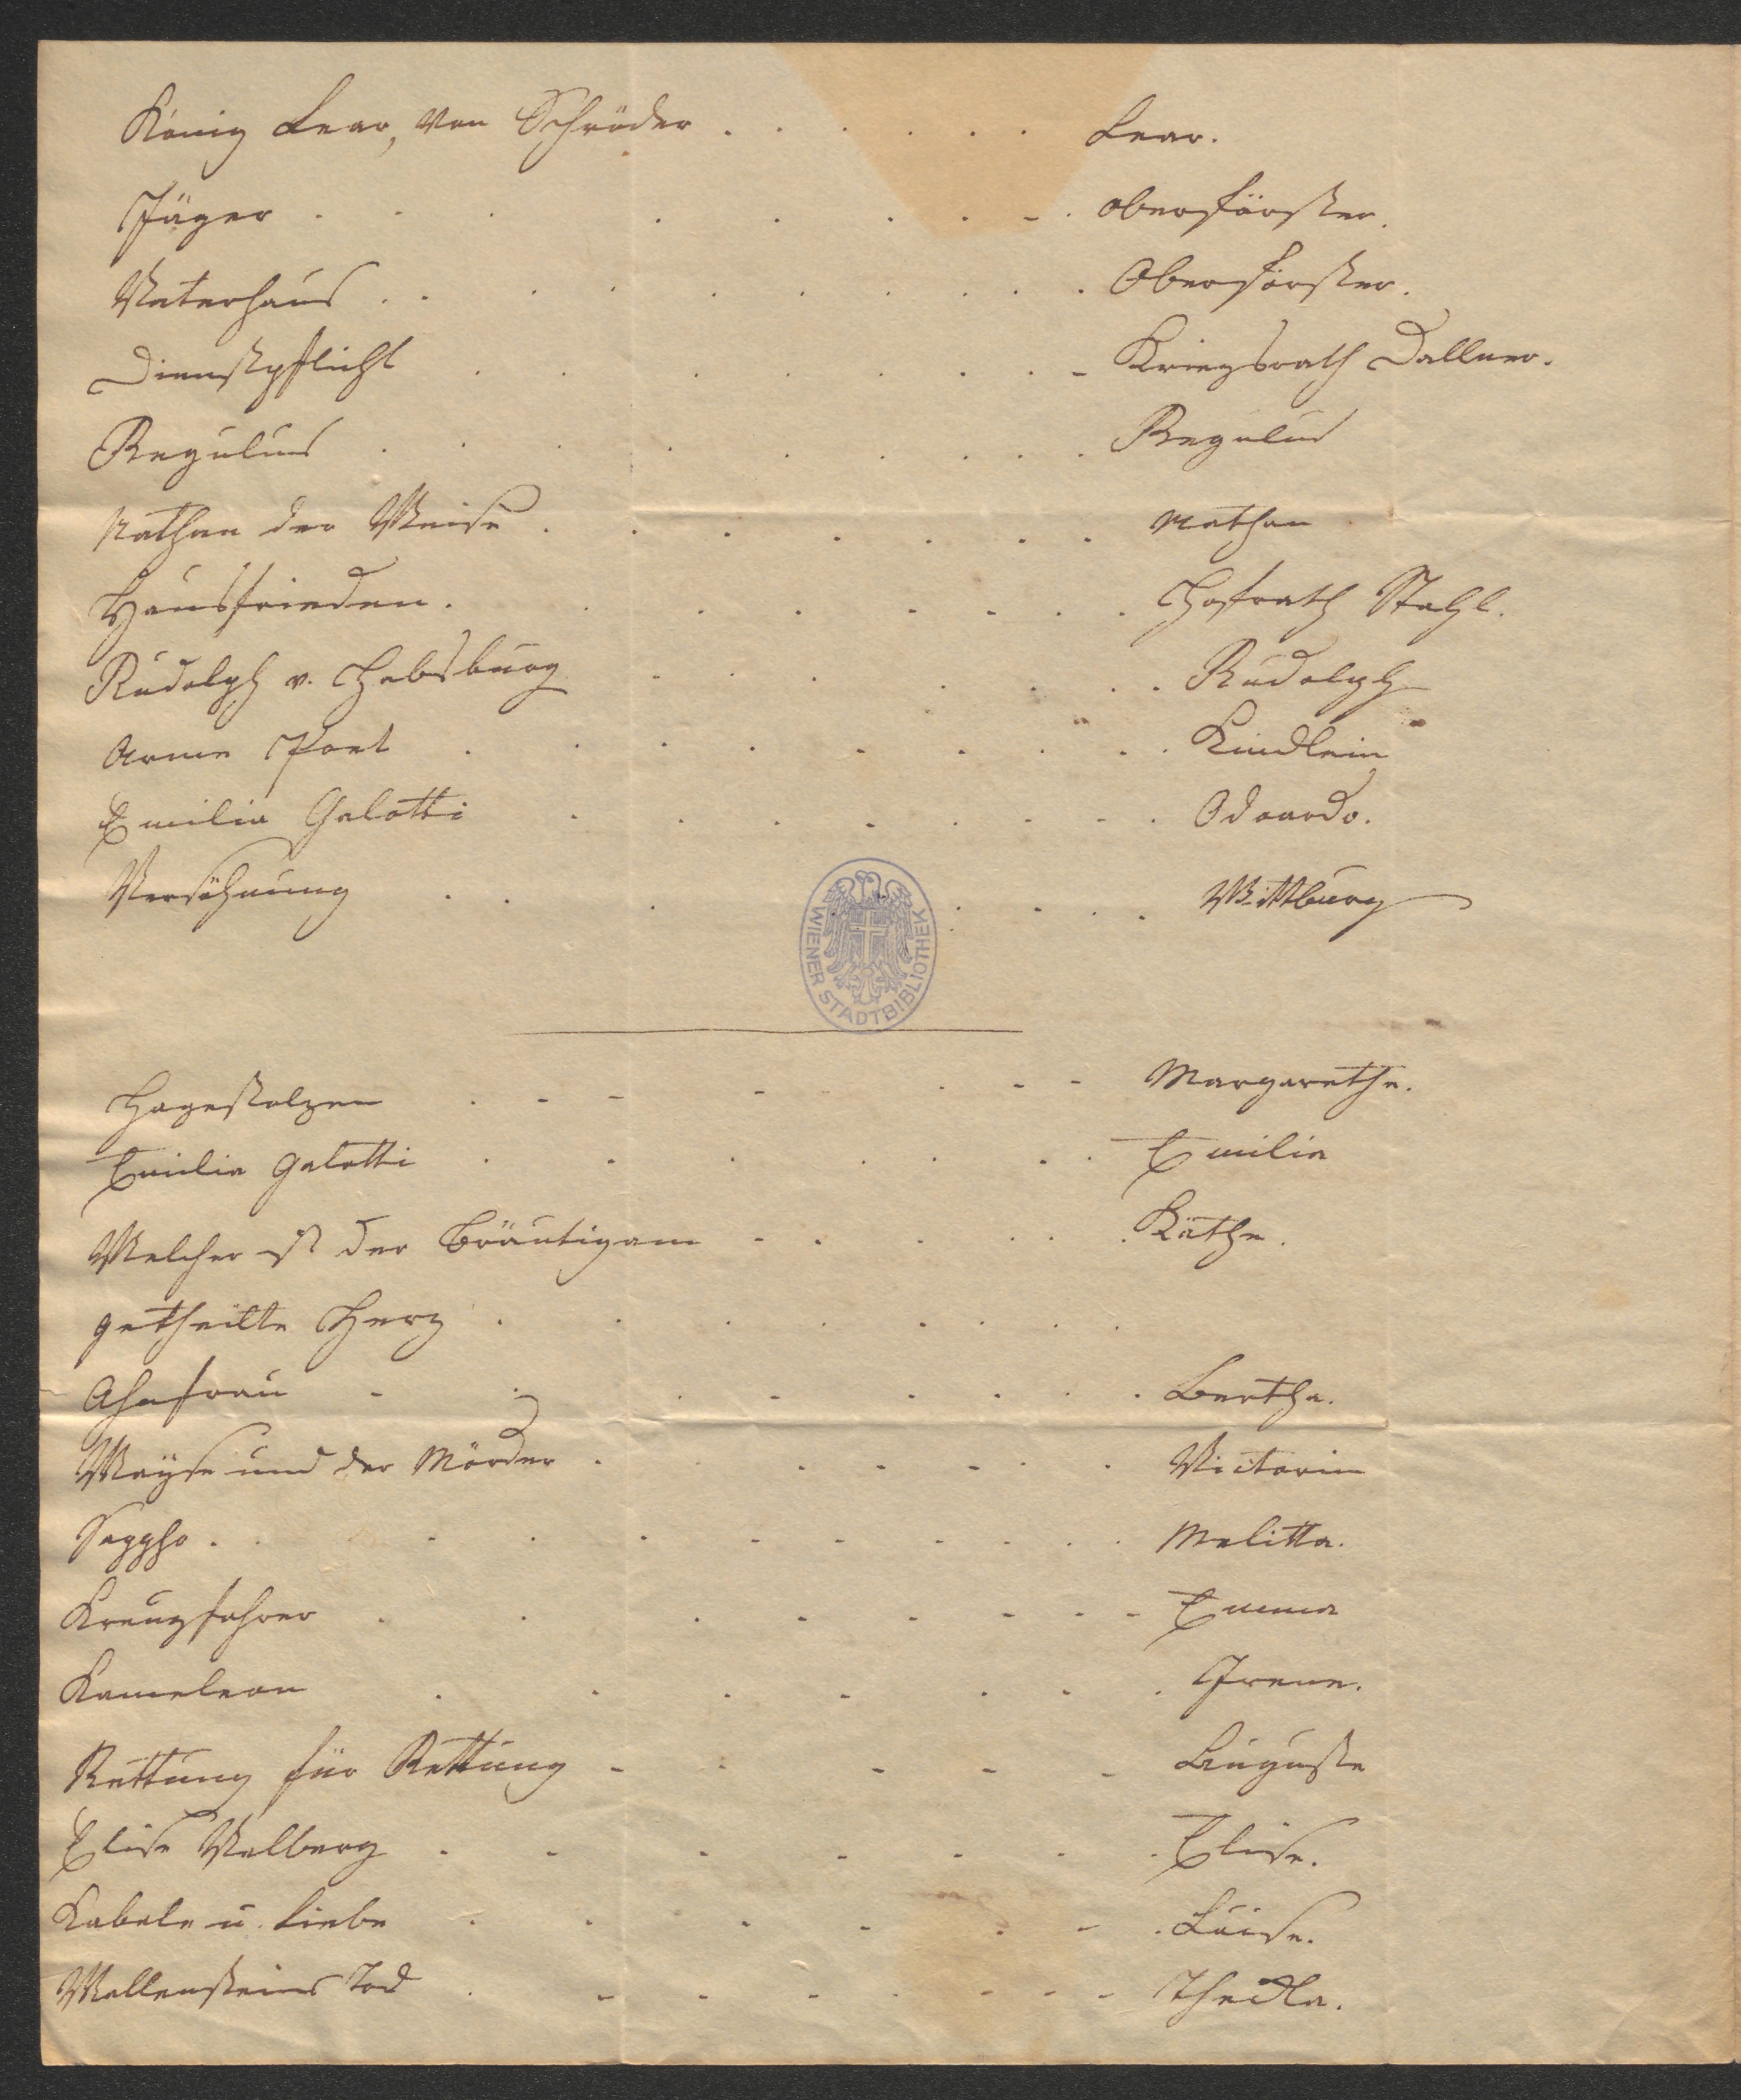 König Lear, von Schröder . . . . . . Lear.
Jäger . . . . . . . . . Oberförster.
Vaterhaus . . . . . . . . . . Oberförster.
Dienstpflicht . . . . . . . . . Kriegsrath Dallner.
Regulus . . . . . . . . . Regulus
Nathan der Weise . . . . . . . Nathan
Hausfrieden. . . . . . . . Hofrath Stahl.
Rudolph v. Habsburg . . . . . . . . Rudolph
Arme Poet . . . . . . . . . Kindlein
Emilia Galotti . . . . . . . . . Odoardo.
Versöhnung . . . . . . . . Wittburg
WIENER STADTBIBLIOTHEK
Hagestolzen . - - - . - - Margarethe.
Emilia Galotti . . . . . . . Emilia
Welcher ist der Bräutigam - . . . . . Käthe.
getheilte Herz . . . . . . . .
Ahnfrau - . . - . . . . Bertha.
Wayse und der Mörder . . - - - . Victorin
Sappho . . - . . - - - . . . Melitta.
Kreuzfahrer . . . - - - - - Emma
Kameleon . . . - . - . Irene.
Rettung für Rettung - - - - - Auguste
Elise Valberg . - - - - . . Elise.
Kabale u. Liebe . . - - . - . Luise.
Wallensteins Tod . - - - . - - - Thecla.